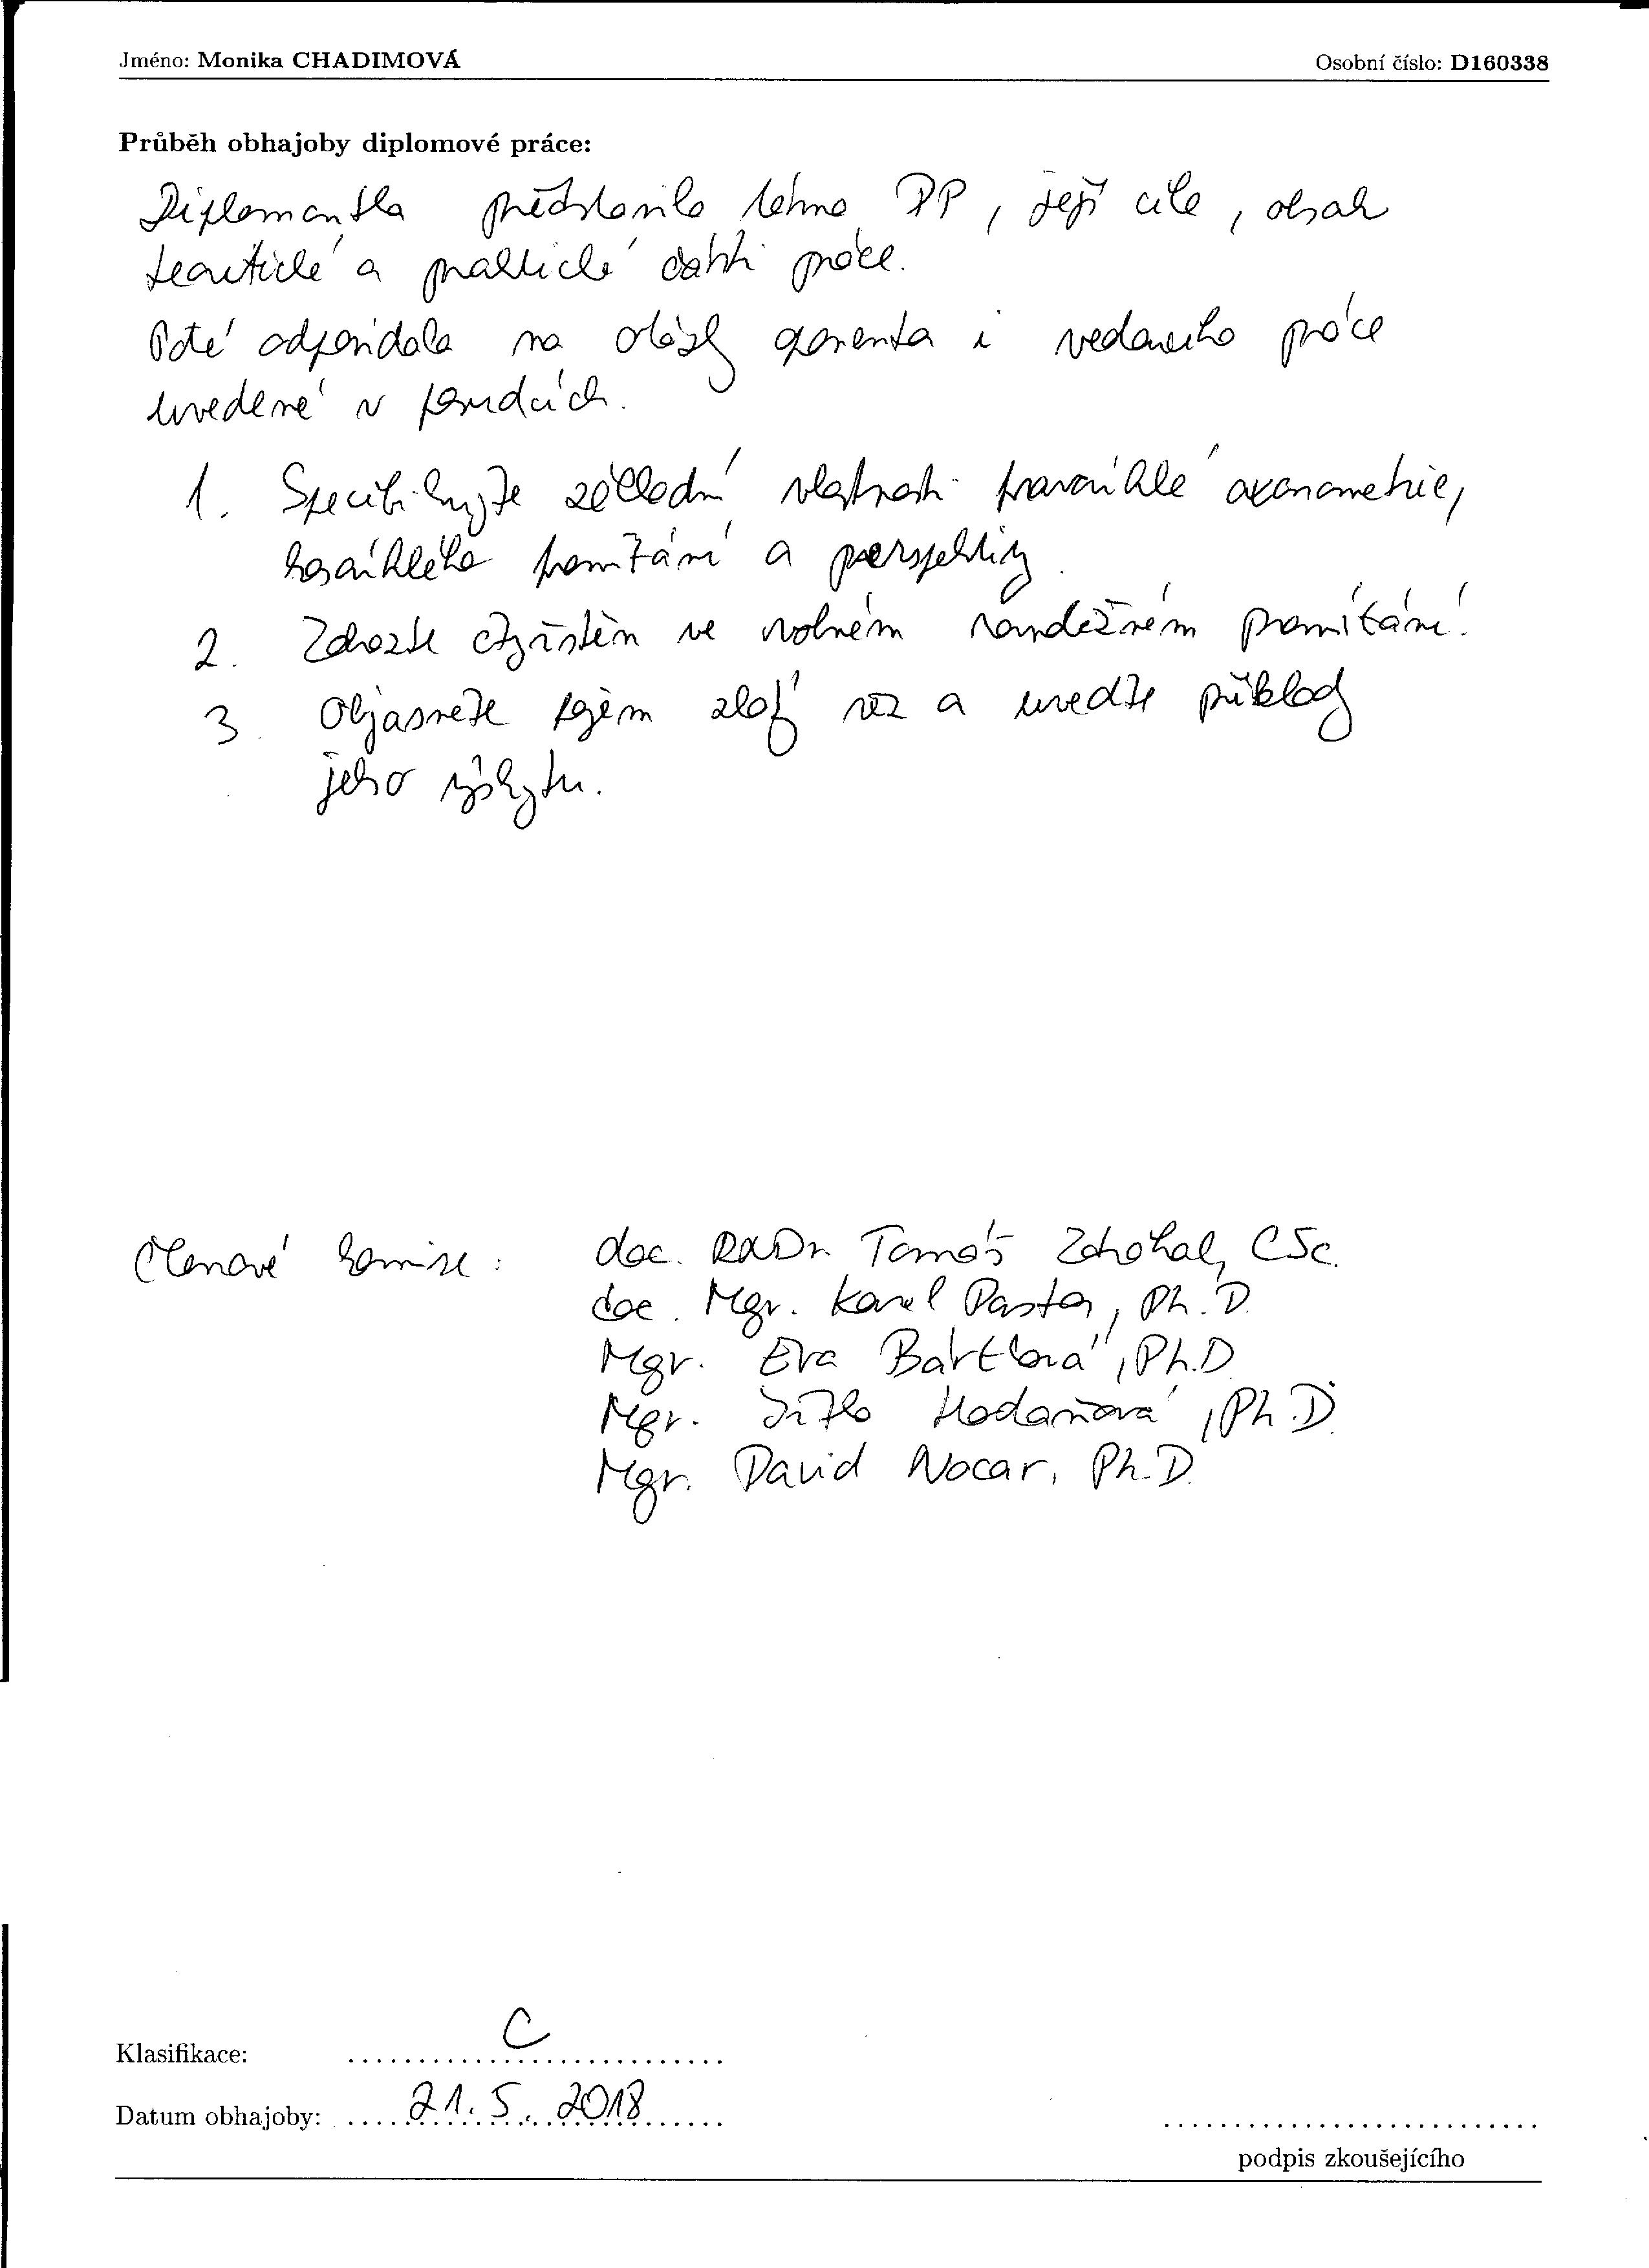 Jméno: Monika CHADIMOVÁ Osobní číslo: D160338
Průběh obhajoby diplomové práce:
Diplomantka představila téma DP, její cíle, obsah
teoretické a praktické části práce.
Poté odpovídala na otázky oponenta i vedoucího práce
uvedené v posudcích.
1. Specifikujte základní vlastnosti pravoúhlé axonometrie,
kosoúhlého promítání a perspektivy.
2. Zobrazte čtyřstěn ve volném rovnoběžném promítání.
3. Objasněte pojem zlatý řez a uveďte příklady
jeho výskytu.
Členové komise: doc. RNDr. Tomáš Zdráhal, CSc.
doc. Mgr. Karel Pastor, Ph.D.
Mgr. Eva Bártková, Ph.D.
Mgr. Jitka Hodaňová, Ph.D.
Mgr. David Nocar, Ph.D.
Klasifikace: C
Datum obhajoby: 21. 5. 2018
podpis zkoušejícího